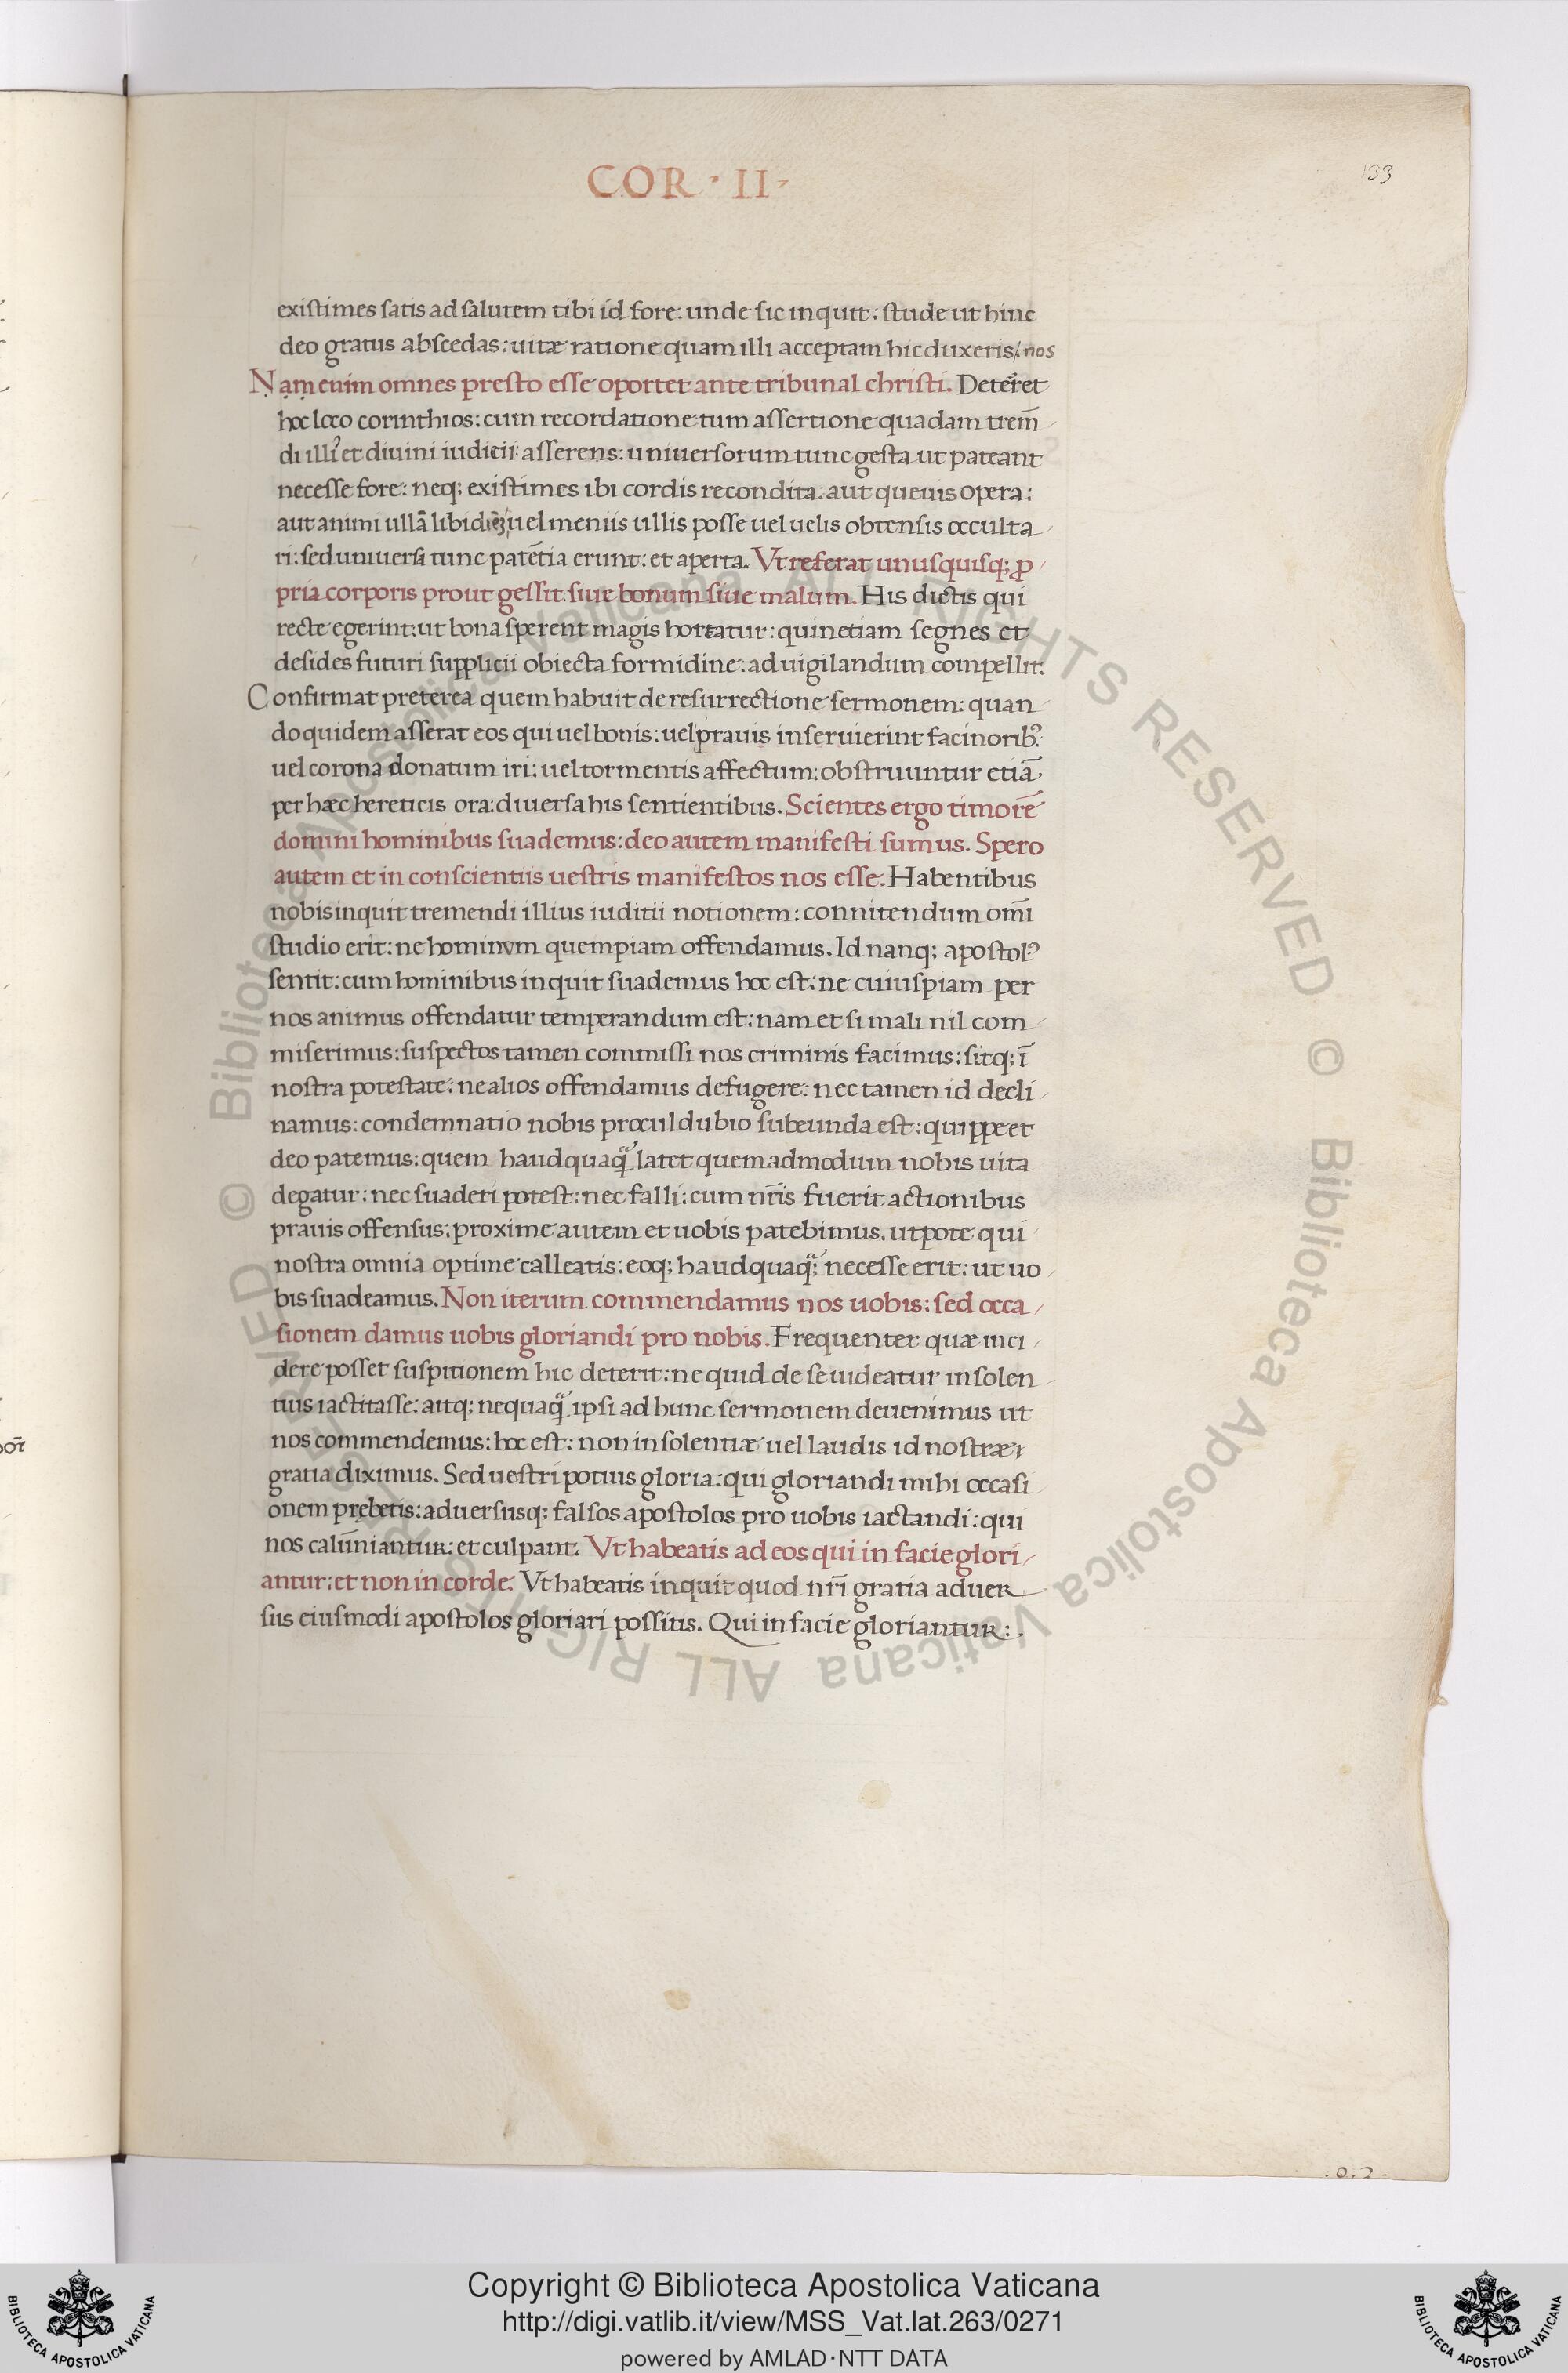 COR · II ·
133
existimes satis ad salutem tibi id fore: unde sic inquit: stude ut hinc
deo gratus abscedas: uitæ ratione quam illi acceptam hic duxeris/. nos
Nam enim omnes presto esse oportet ante tribunal christi. Deterret
hoc loco corinthios: cum recordatione tum assertione quadam trem̄
di illiꝰ et diuini iudicii: asserens: uniuersorum tunc gesta ut pateant
necesse fore: neq; existimes ibi cordis recondita: aut queuis opera:
aut animi ullā uel meniis ullis posse uel uelis obtensis occulta
ri: sed uniuersa tunc patētia erunt: et aperta. Vt referat unusquisq; ꝓ
pria corporis prout gessit: siue bonum siue malum. His dictis qui
recte egerint: ut bona sperent magis hortatur: quinetiam segnes et
desides futuri supplicii obiecta formidine: ad uigilandum compellit.
Confirmat preterea quem habuit de resurrectione sermonem: quan
do quidem asserat eos qui uel bonis: uel prauis inseruierint facinoribꝰ:
uel corona donatum iri: uel tormentis affectum: obstruuntur etiā
per hæc hereticis ora: diuersa his sentientibus. Scientes ergo timorē
domini hominibus suademus: deo autem manifesti sumus. Spero
autem et in conscientiis uestris manifestos nos esse. Habentibus
nobis inquit tremendi illius iuditii notionem: connitendum om̄i
studio erit: ne hominvm quempiam offendamus. Id nanq; apostolꝰ
sentit: cum hominibus inquit suademus hoc est: ne cuiuspiam per
nos animus offendatur temperandum est: nam et si mali nil com
miserimus: suspectos tamen commissi nos criminis facimus: sitq; ī
nostra potestate: ne alios offendamus defugere: nec tamen id decli
namus: condemnatio nobis procul dubio subeunda est: quippe et
deo patemus: quem haud quaꝗ̈ latet quemadmodum nobis uita
degatur: nec suaderi potest: nec falli: cum nr̄is fuerit actionibus
prauis offensus: proxime autem et uobis patebimus. utpote qui
nostra omnia optime calleatis: eoq; haud quaꝗ̈; necesse erit: ut uo
bis suadeamus. Non iterum commendamus nos uobis: sed occa
sionem damus uobis gloriandi pro nobis. Frequenter quæ inci
dere posset suspitionem hic deterit: ne quid de se uideatur insolen
tius iactitasse: aitq; nequaꝗ̈ ipsi ad hunc sermonem deuenimus ut
nos commendemus: hoc est: non insolentiæ uel laudis id nostræ
gratia diximus. Sed uestri potius gloria: qui gloriandi mihi occasi
onem prębetis: aduersusq; falsos apostolos pro uobis iactandi: qui
nos calūniantur: et culpant. Vt habeatis ad eos qui in facie glori
antur: et non in corde. Vt habeatis inquit quod nr̄i gratia aduer
sus eiusmodi apostolos gloriari possitis. Qui in facie gloriantur: .
© Biblioteca Apostolica Vaticana ALL RIGHTS RESERVED © Biblioteca Apostolica Vaticana ALL RIGHTS RESERVED
Copyright © Biblioteca Apostolica Vaticana
http://digi.vatlib.it/view/MSS_Vat.lat.263/0271
powered by AMLAD·NTT DATA
BIBLIOTECA APOSTOLICA VATICANA
BIBLIOTECA APOSTOLICA VATICANA